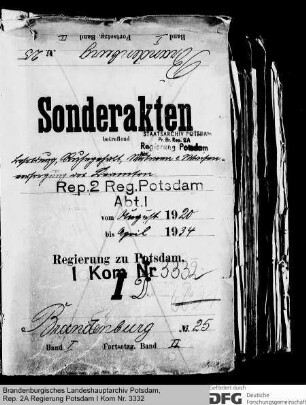 Band I Fortsetzg. Band II
Brandenburg № 25
Sonderakten
betreffend
STAATSARCHIV POTSDAM
Pr. Br. Rep. 2A
Regierung Potsdam
Besoldung, Ruhegehalt, Witwen- u. Waisen-
versorgung der Beamten
Rep.2 Reg.Potsdam
Abt.I
vom August 1920
bis April 1934
Regierung zu Potsdam.
I Kom Nr. 3332
Brandenburg № 25
Band I Fortsetzg. Band II
Brandenburgisches Landeshauptarchiv Potsdam,
Rep. 2A Regierung Potsdam I Kom Nr. 3332
Gefördert durch
DFG Deutsche
Forschungsgemeinschaft